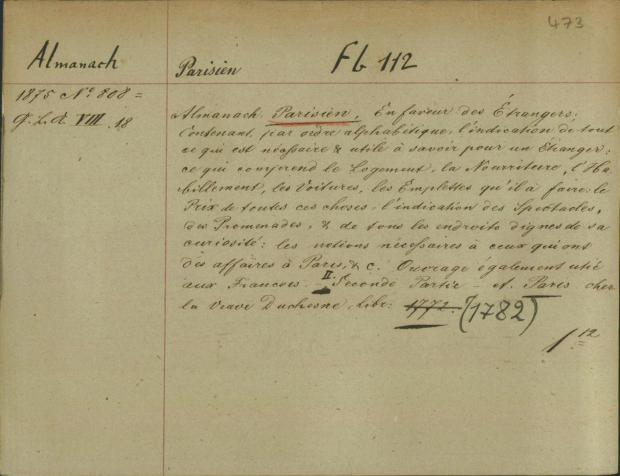 473
Almanach Parisien Fb 112
1875 Nº 808 =
VIII. 18
Almanach Parisien, En faveur des Étrangers;
Contenant, par ordre alphabétique, l'indication de tout
ce qui est nécessaire & utile à savoir pour un Étranger;
ce qui comprend le Logement, la Nourriture, l'Ha-
billement, les Voitures, les Emplettes qu'il a à faire le
Prix de toutes ces choses: l'indication des Spectacles,
des Promenades, & de tous les endroits dignes de sa
curiosité: les notions nécessaires à ceux qui ont
des affaires à Paris, & c. Ouvrage également utile
aux Francois. II. Seconde Partie - A. Paris chez
la Veuve Duchesne, libr: 1772. (1782)
1 12